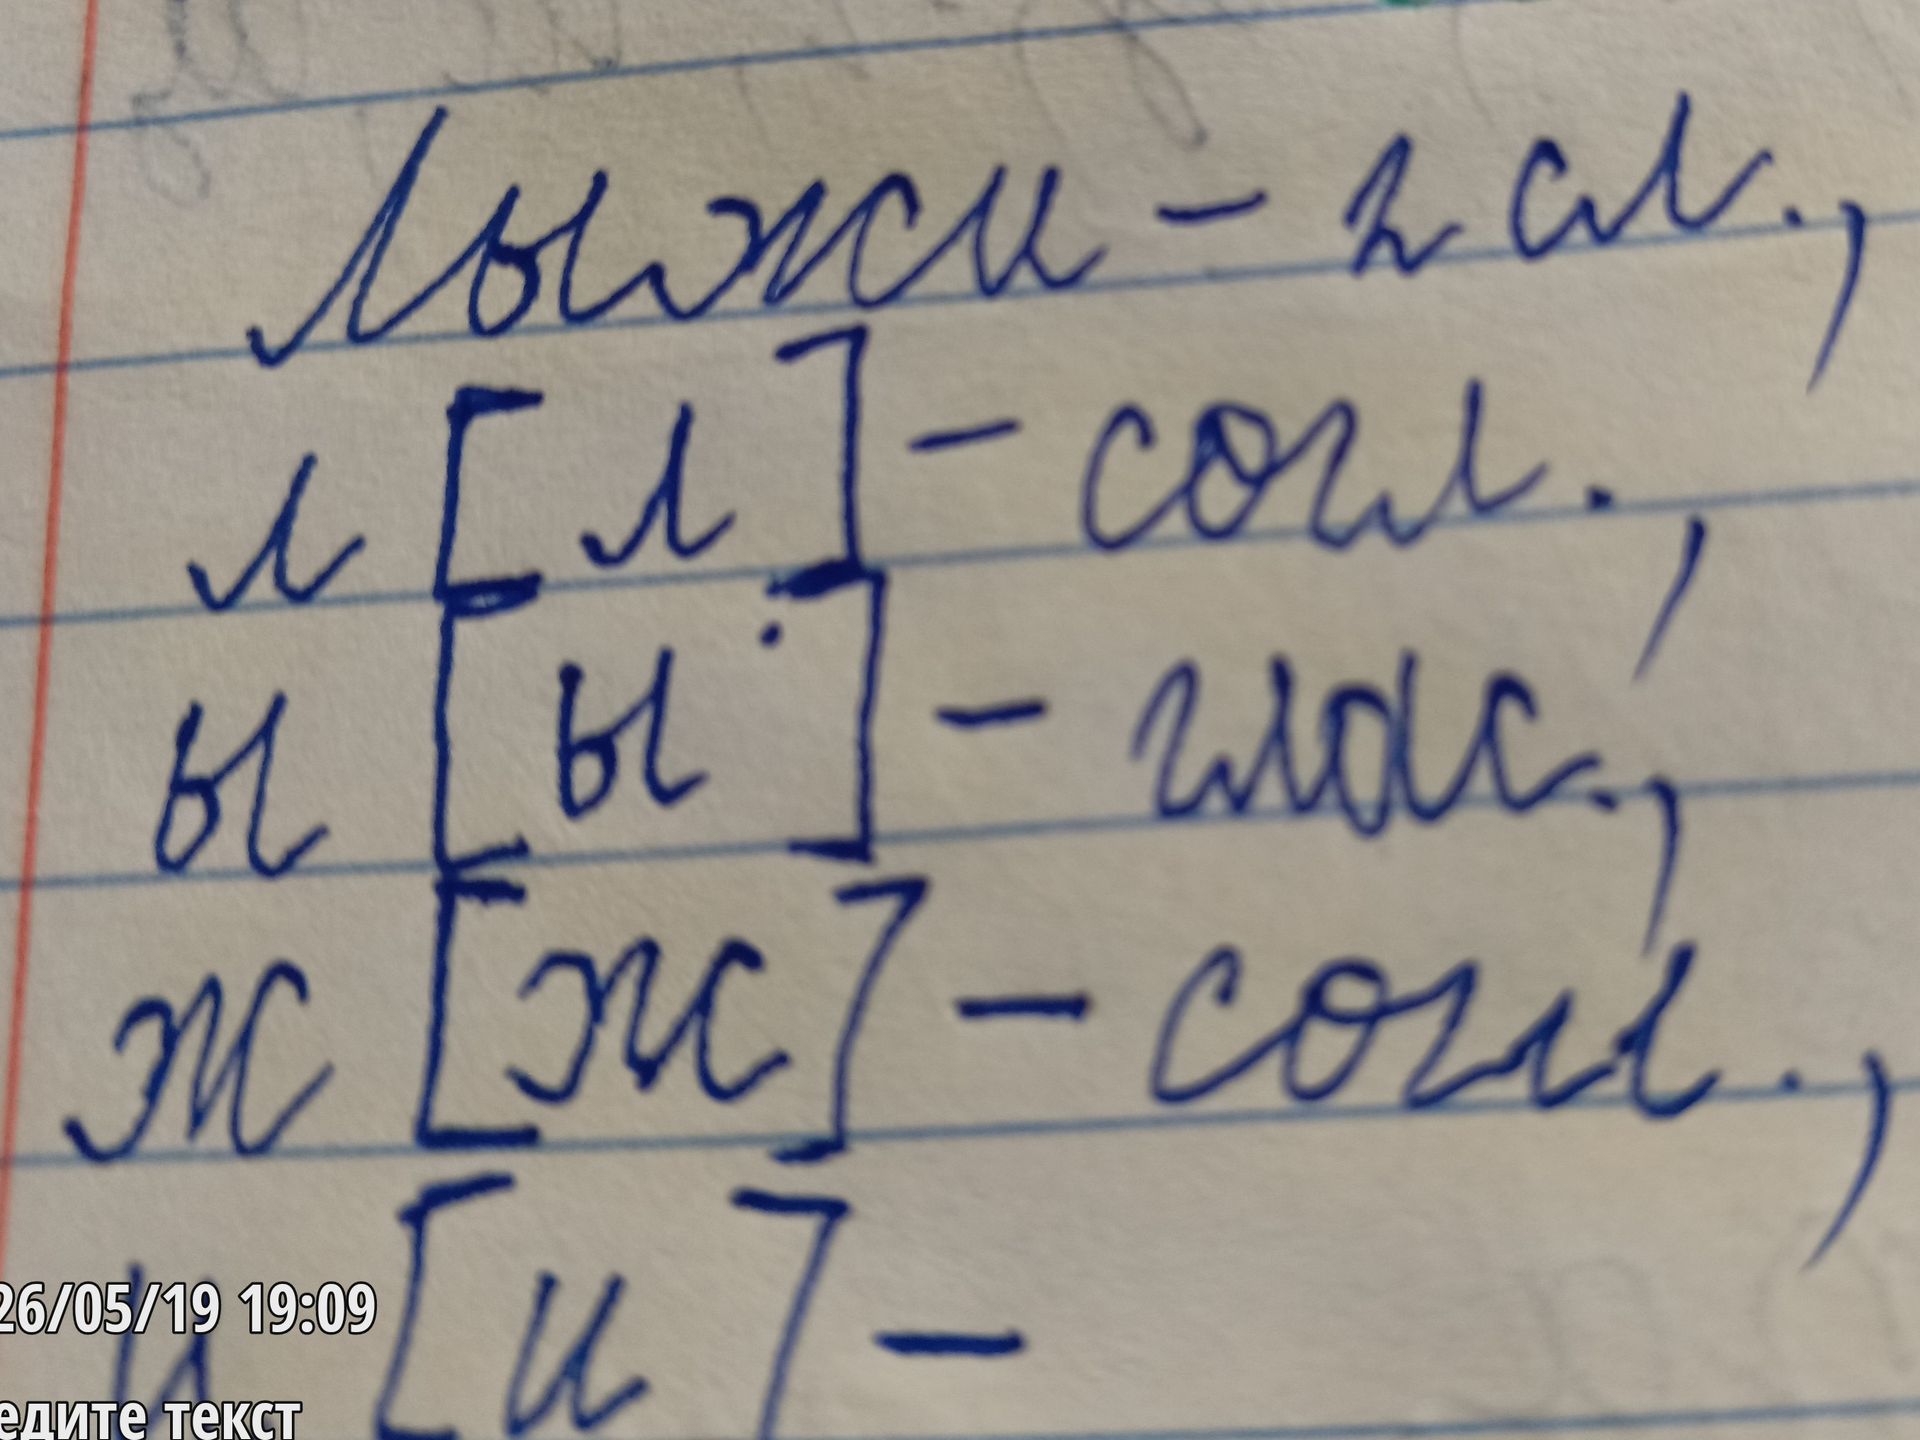 Лыжи - 2 сл.,
л [л] - согл.,
ы [ы] - глас.,
ж [ж] - согл.,
и [и] -
26/05/19 19:09
едите текст